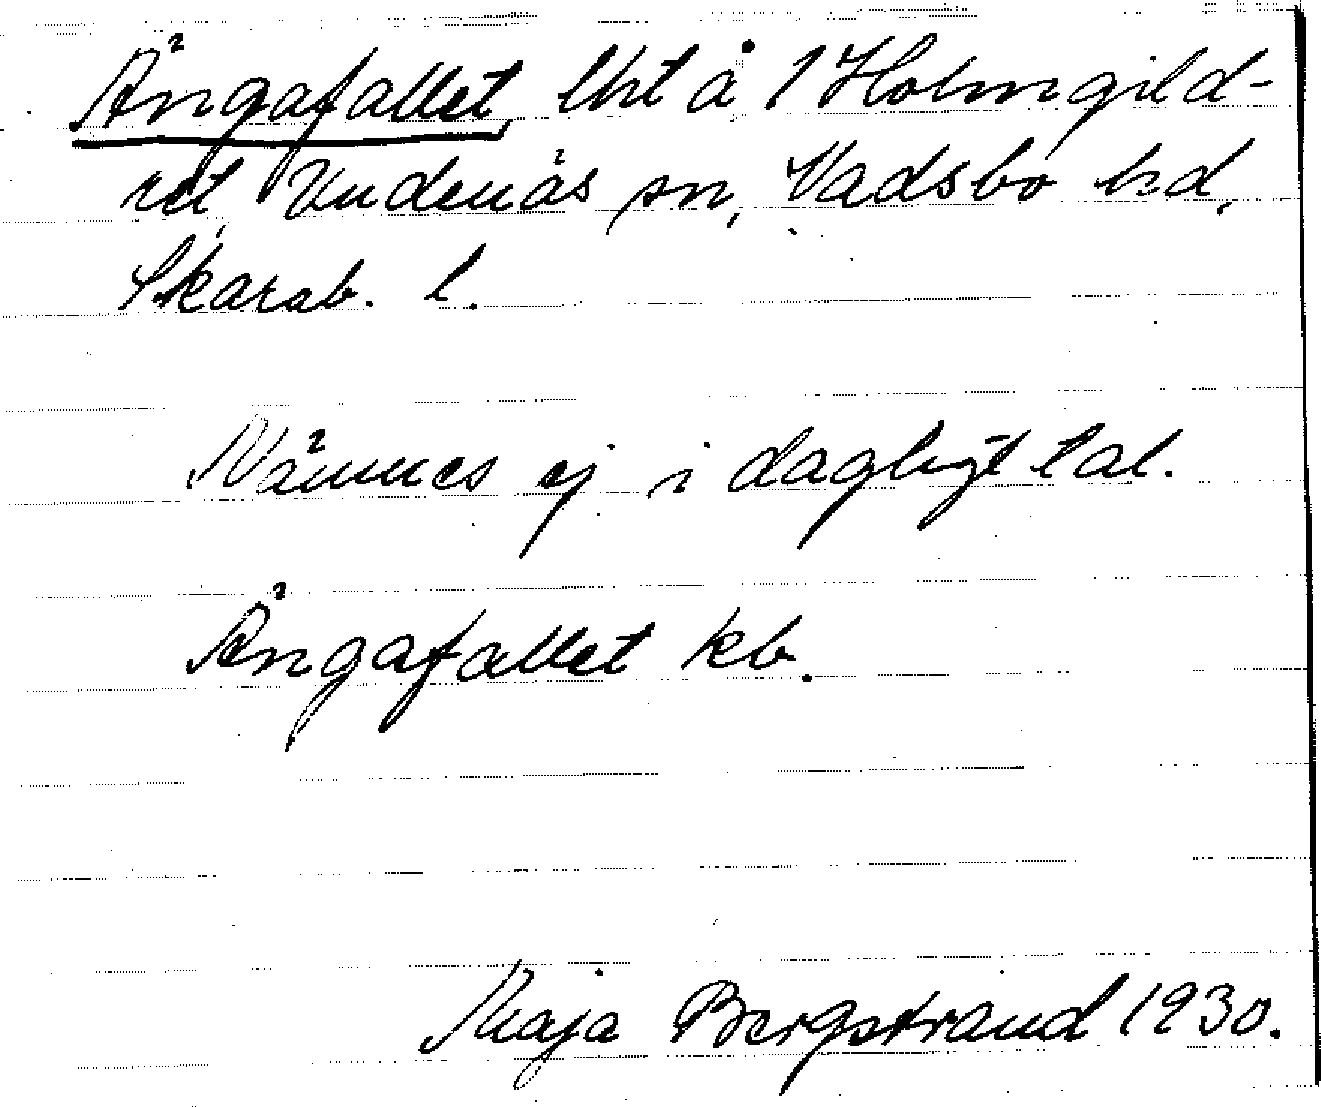 Ängafallet, lht å 1 Holmgild-
ret, Undenäs sn, Vadsbo hd,
Skarab. l.
Nämnes ej i dagligt tal.
Ängafallet kb.
Maja Bergstrand 1930.